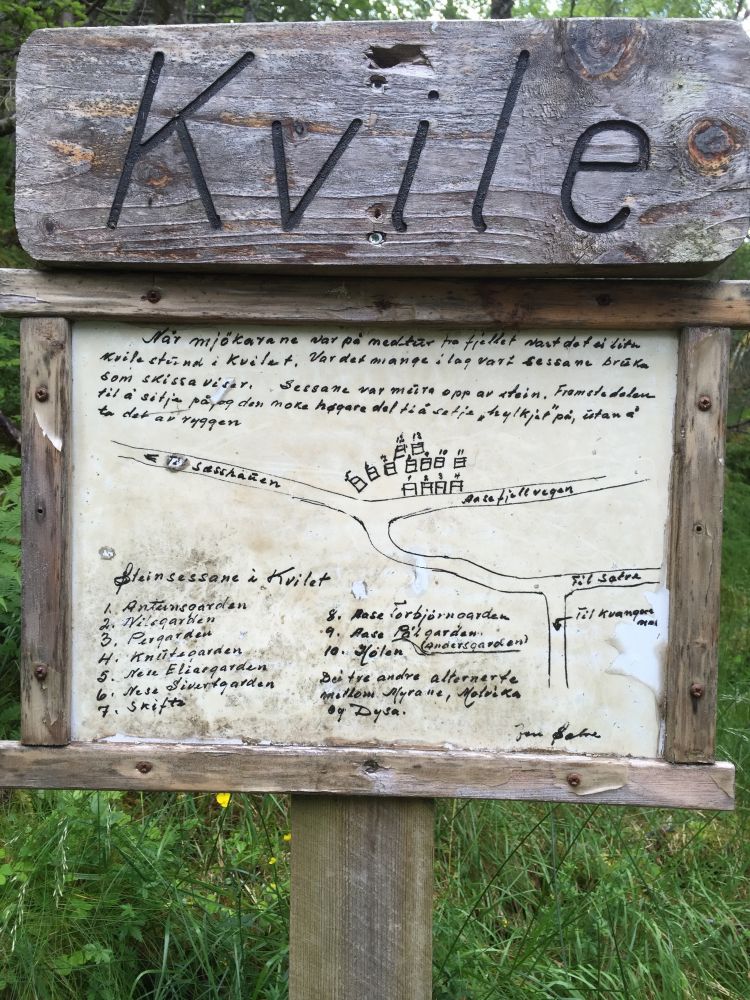 Kvile
Når mjökarane var på nedtur fra fjellet vart det ei liten
kvilestund i Kvilet. Var det mange i lag vart sessane bruka
som skissa viser. Sessane var mura opp av stein. Fremste delen
til å sitje på og den noke høgare del ti å setje på, utan å
ta det av ryggen
13
12
11
10
9
8
7
6
5
4
3
2
1
Til Sæsshaüen
Aasefjellvegen
Til Sætre
Til Kvangers
Steinsessane i Kvilet
1. Antunsgarden
2. Nilsgarden
3. Pergarden
4. Knütegarden
5. Nese Eliasgarden
6. Nese Sivertgarden
7. Skifte
8. Aase Torbjörngarden
9. Aase Pålgarden
(Andersgarden)
10. Hölen
Dei tre andre alternerte
mellom Myrane, Molvika
og Dysa.
Jon Sætre